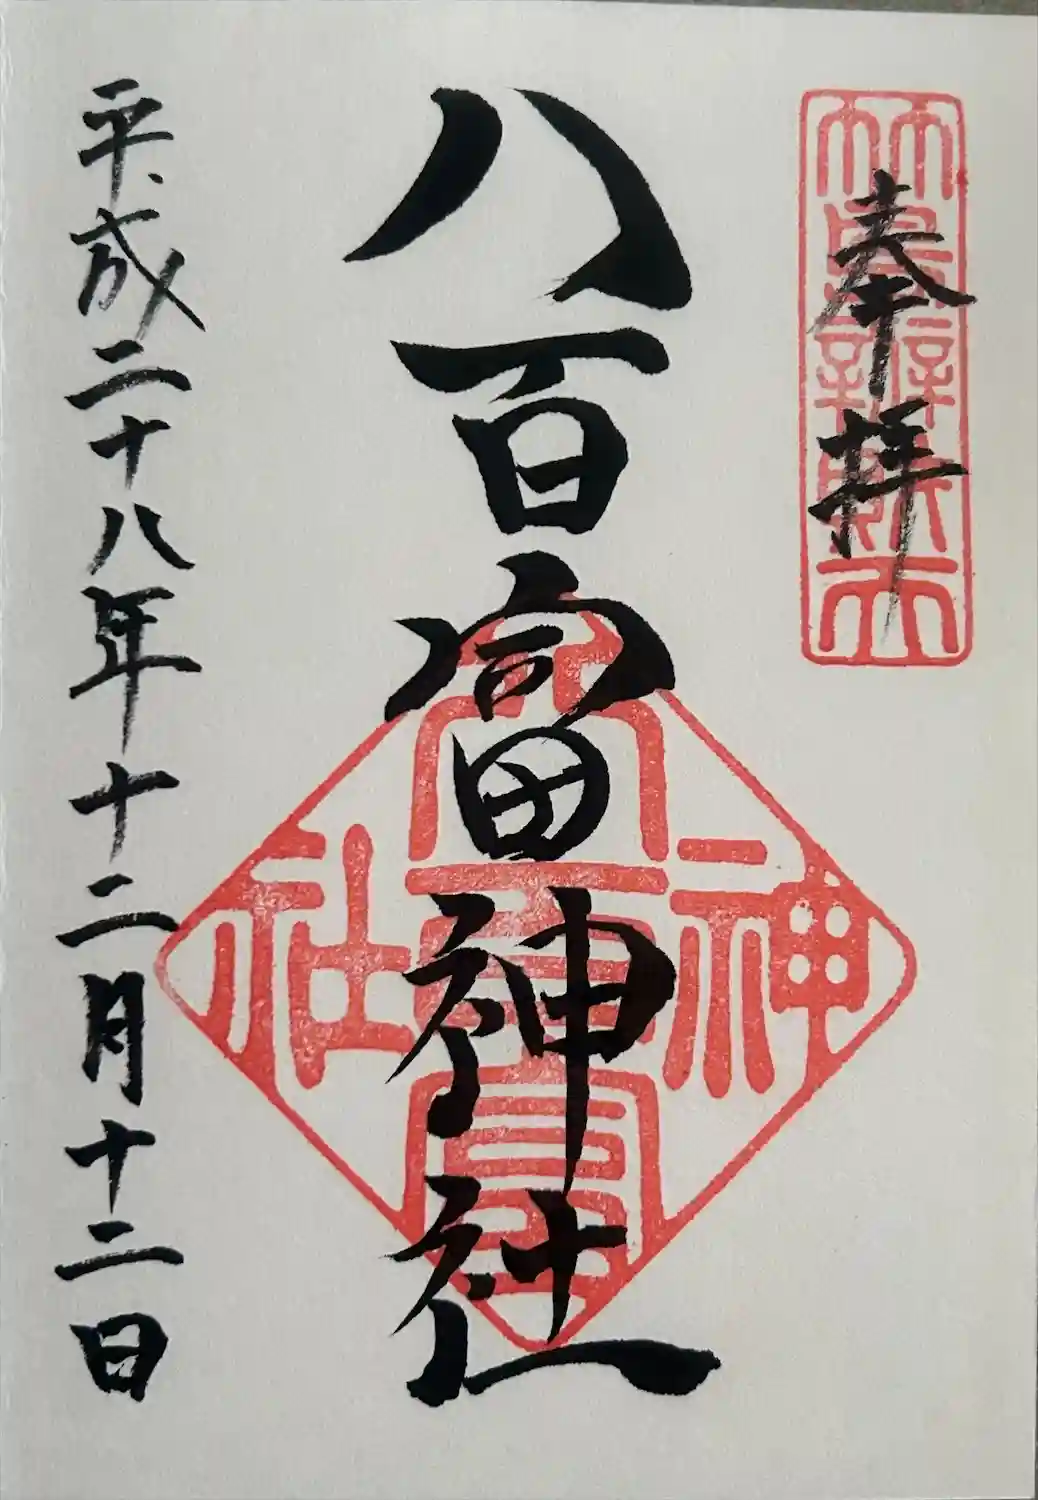 奉拝
竹島辨財天
八百富神社
八百富神社
平成二十八年十二月十二日